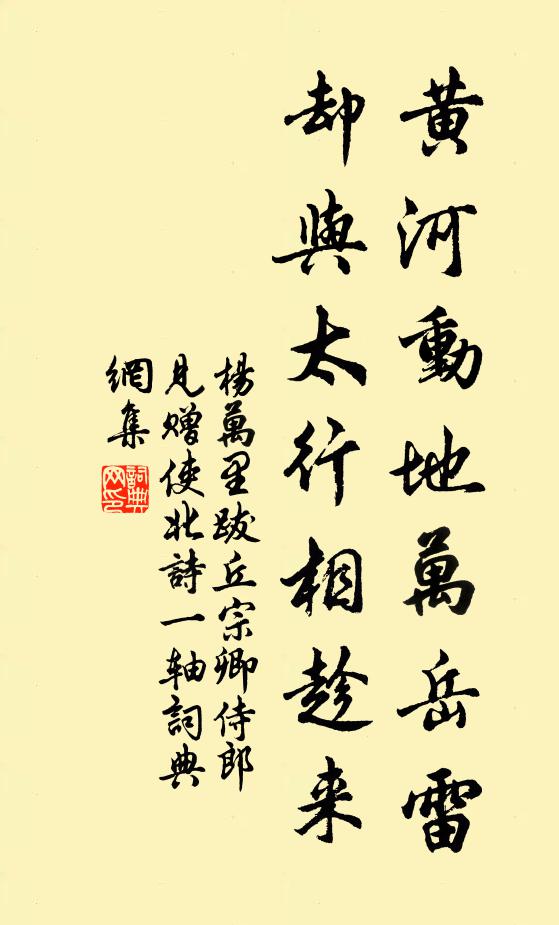 黃河動地萬岳雷
却與太行相趁来
楊萬里跋丘宗卿侍郎
見贈使北詩一轴詞典
網集
詞典
网印